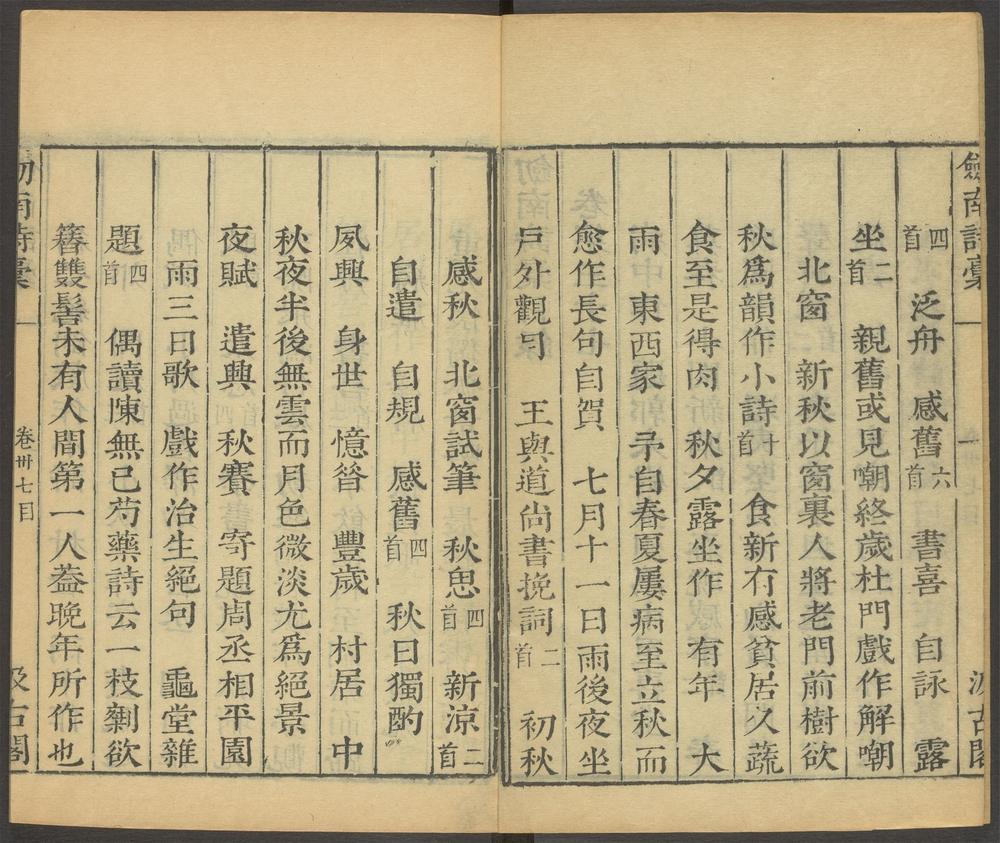 劍南詩稾
汲古閣
四首 泛舟 感舊六首 書喜 自詠 露
坐二首 親舊或見嘲終歲杜門戲作解嘲
北窗 新秋以窗裏人將老門前樹欲
秋爲韻作小詩十首 食新有感貧居久蔬
食至是得肉 秋夕露坐作 有年 大
雨 東西家 予自春夏屢病至立秋而
愈作長句自賀 七月十一日雨後夜坐
戸外觀月 王與道尙書挽詞二首 初秋
感秋 北窗試筆 秋思四首 新涼二首
自遣 自規 感舊四首 秋日獨酌
夙興 身世 憶昝 豐歲 村居 中
秋夜半後無雲而月色微淡尤爲絕景
夜賦 遣興 秋賽 寄題周丞相平園
雨三日歌 戲作治生絕句 龜堂雜
題四首 偶讀陳無已芍藥詩云一枝剩欲
簪雙髻未有人間第一人葢晚年所作也
劍南詩稾
卷卅七目
汲古閣